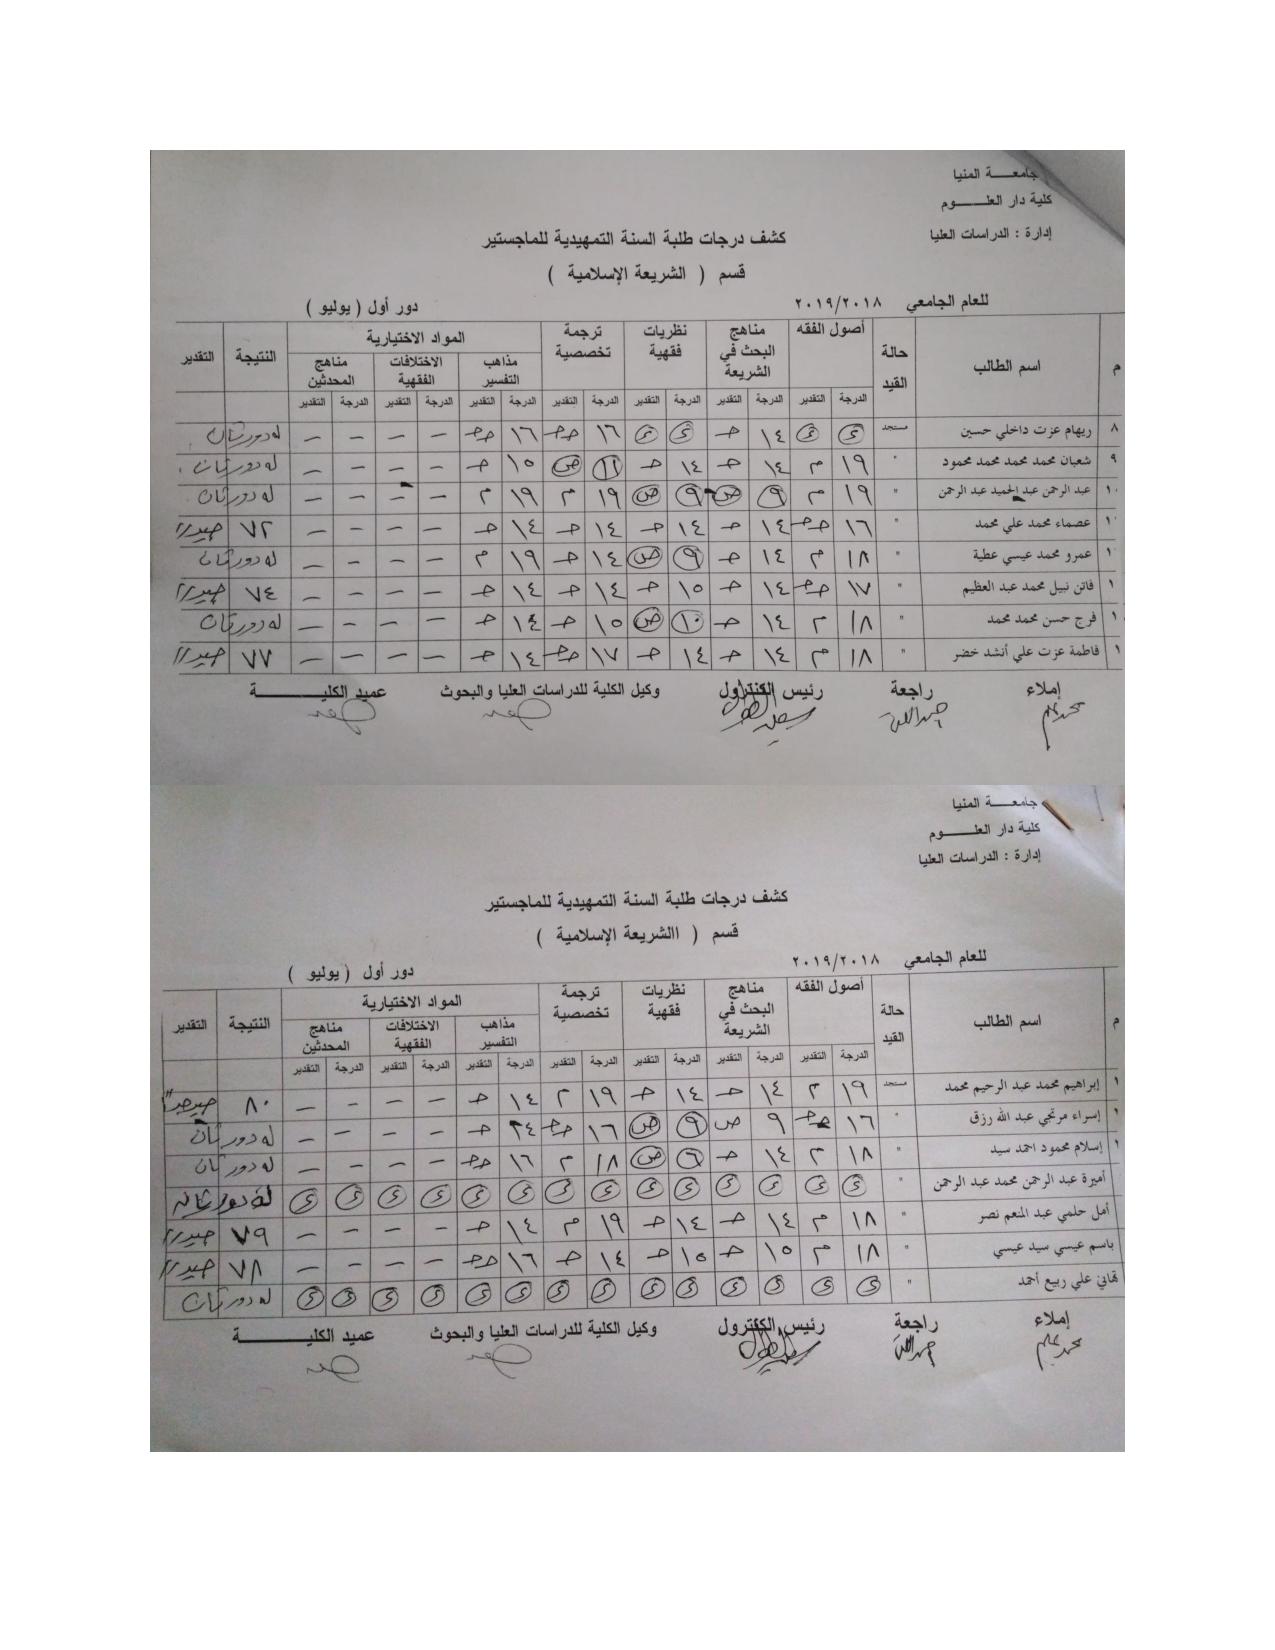 جامعـــة المنيا
كلية دار العلـــــوم
إدارة : الدراسات العليا
كشف درجات طلبة السنة التمهيدية للماجستير
قسم ( الشريعة الإسلامية )
للعام الجامعي ٢٠١٩/٢٠١٨ دور أول ( يوليو )
م اسم الطالب حالة القيد أصول الفقه مناهج البحث في الشريعة نظريات فقهية ترجمة تخصصية المواد الاختيارية النتيجة التقدير
مذاهب التفسير الاختلافات الفقهية مناهج المحدثين
الدرجة التقدير الدرجة التقدير الدرجة التقدير الدرجة التقدير الدرجة التقدير الدرجة التقدير الدرجة التقدير
٨ ريهام عزت داخلي حسين مستجد غ غ ١٤ جـ غ غ ١٦ جـجـ ١٦ جـجـ – – – – له دور ثان
٩ شعبان محمد محمد محمد محمود " ١٩ م ١٤ جـ ١٤ جـ ١١ ض ١٥ جـ – – – – له دور ثان
١٠ عبد الرحمن عبد الحميد عبد الرحمن " ١٩ م ٩ ض ٩ ض ١٩ م ١٩ م – – – – له دور ثان
١ عصماء محمد علي محمد " ١٦ جـجـ ١٤ جـ ١٤ جـ ١٤ جـ ١٤ جـ – – – – ٧٢ جيد
١ عمرو محمد عيسي عطية " ١٨ م ١٤ جـ ٩ ض ١٤ جـ ١٩ م – – – – له دور ثان
١ فاتن نبيل محمد عبد العظيم " ١٧ جـجـ ١٤ جـ ١٥ جـ ١٤ جـ ١٤ جـ – – – – ٧٤ جيد
١ فرج حسن محمد محمد " ١٨ م ١٤ جـ ١٠ ض ١٥ جـ ١٤ جـ – – – – له دور ثان
١ فاطمة عزت علي أنشد خضر " ١٨ م ١٤ جـ ١٤ جـ ١٧ جـجـ ١٤ جـ – – – – ٧٧ جيد
إملاء راجعة رئيس الكنترول وكيل الكلية للدراسات العليا والبحوث عميد الكليــــــة
جامعـــة المنيا
كلية دار العلـــــوم
إدارة : الدراسات العليا
كشف درجات طلبة السنة التمهيدية للماجستير
قسم ( االشريعة الإسلامية )
للعام الجامعي ٢٠١٩/٢٠١٨ دور أول ( يوليو )
م اسم الطالب حالة القيد أصول الفقه مناهج البحث في الشريعة نظريات فقهية ترجمة تخصصية المواد الاختيارية النتيجة التقدير
مذاهب التفسير الاختلافات الفقهية مناهج المحدثين
الدرجة التقدير الدرجة التقدير الدرجة التقدير الدرجة التقدير الدرجة التقدير الدرجة التقدير الدرجة التقدير
١ إبراهيم محمد عبد الرحيم محمد مستجد ١٩ م ١٤ جـ ١٤ جـ ١٩ م ١٤ جـ – – – – ٨٠ جيد جدا
١ إسراء مرتجي عبد الله رزق " ١٦ جـجـ ٩ ض ٩ ض ١٦ جـجـ ٢٤ جـ – – – – له دور ثان
١ إسلام محمود احمد سيد " ١٨ م ١٤ جـ ٦ ض ١٨ م ١٦ جـجـ – – – – له دور ثان
أميرة عبد الرحمن محمد عبد الرحمن " غ غ غ غ غ غ غ غ غ غ غ غ غ غ له دور ثان
أمل حلمي عبد المنعم نصر " ١٨ م ١٤ جـ ١٤ جـ ١٩ م ١٤ جـ – – – – ٧٩ جيد
باسم عيسي سيد عيسي " ١٨ م ١٥ جـ ١٥ جـ ١٤ جـ ١٦ جـجـ – – – – ٧٨ جيد
تهاني علي ربيع أحمد " غ غ غ غ غ غ غ غ غ غ غ غ غ غ له دور ثان
إملاء راجعة رئيس الكنترول وكيل الكلية للدراسات العليا والبحوث عميد الكليــــــة